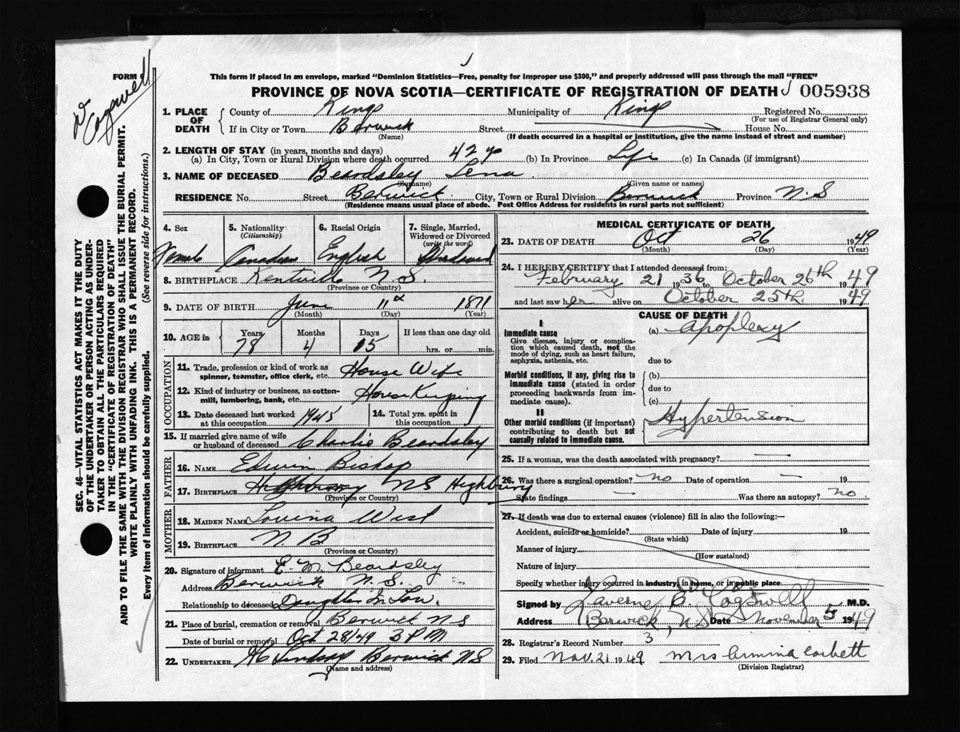 Dr Cogswell
FORM 6
This form if placed in an envelope, marked "Dominion Statistics—Free, penalty for improper use $300," and properly addressed will pass through the mail "FREE"
PROVINCE OF NOVA SCOTIA—CERTIFICATE OF REGISTRATION OF DEATH 005938
SEC. 46—VITAL STATISTICS ACT MAKES IT THE DUTY
OF THE UNDERTAKER OR PERSON ACTING AS UNDER-
TAKER TO OBTAIN ALL THE PARTICULARS REQUIRED
IN THE "CERTIFICATE OF REGISTRATION OF DEATH"
AND TO FILE THE SAME WITH THE DIVISION REGISTRAR WHO SHALL ISSUE THE BURIAL PERMIT.
WRITE PLAINLY WITH UNFADING INK. THIS IS A PERMANENT RECORD.
Every item of Information should be carefully supplied. (See reverse side for instructions.)
1. PLACE OF DEATH
County of Kings Municipality of Kings Registered No.
(For use of Registrar General only)
If in City or Town Berwick Street House No.
(Name) (If death occurred in a hospital or institution, give the name instead of street and number)
2. LENGTH OF STAY (in years, months and days)
(a) In City, Town or Rural Division where death occurred 42 y (b) In Province Life (c) In Canada (if immigrant)
3. NAME OF DECEASED Beardsley Lena
(Surname) (Given name or names)
RESIDENCE No. Street Berwick City, Town or Rural Division Berwick Province N.S
(Residence means usual place of abode. Post Office Address for residents in rural parts not sufficient)
4. Sex 5. Nationality (Citizenship) 6. Racial Origin 7. Single, Married, Widowed or Divorced (write the word)
Female Canadian English Widowed
8. BIRTHPLACE Kentville N.S
(Province or Country)
9. DATE OF BIRTH June 11th 1871
(Month) (Day) (Year)
10. AGE in Years Months Days If less than one day old
78 4 15 hrs. or min.
OCCUPATION
11. Trade, profession or kind of work as spinner, teamster, office clerk, etc. House Wife
12. Kind of industry or business, as cotton-mill, lumbering, bank, etc. House Keeping
13. Date deceased last worked at this occupation 1945 14. Total yrs. spent in this occupation
15. If married give name of wife or husband of deceased Charlie Beardsley
FATHER
16. NAME Edwin Bishop
17. BIRTHPLACE NS Highbury
(Province or Country)
MOTHER
18. MAIDEN NAME Louina West
19. BIRTHPLACE N.B
(Province or Country)
20. Signature of informant E. M. Beardsley
Address Berwick N.S.
Relationship to deceased Daughter In Law.
21. Place of burial, cremation or removal Berwick N S
Date of burial or removal Oct 28/49 3 PM
22. UNDERTAKER Lindsay Berwick N S
(Name and address)
MEDICAL CERTIFICATE OF DEATH
23. DATE OF DEATH Oct 26 1949
(Month) (Day) (Year)
24. I HEREBY CERTIFY that I attended deceased from:
February 21 1936 to October 26th 1949
and last saw her alive on October 25th 1949
CAUSE OF DEATH
I
Immediate cause (a) Apoplexy
Give disease, injury or complication which caused death, not the mode of dying, such as heart failure, asphyxia, asthenia, etc.
due to
Morbid conditions, if any, giving rise to immediate cause (stated in order proceeding backwards from immediate cause).
(b)
due to
(c)
II
Other morbid conditions (if important) contributing to death but not causally related to immediate cause.
Hypertension
25. If a woman, was the death associated with pregnancy? —
26. Was there a surgical operation? No Date of operation — 19
State findings — Was there an autopsy? No.
27. If death was due to external causes (violence) fill in also the following:—
Accident, suicide or homicide? Date of injury 19
(State which)
Manner of injury
(How sustained)
Nature of injury
Specify whether injury occurred in industry, in home, or in public place
Signed by Laverne B. Cogswell M.D.
Address Berwick, N.S Date November 5 1949
28. Registrar's Record Number 3
29. Filed Nov. 21 1949 Mrs Ermina Corbett
(Division Registrar)